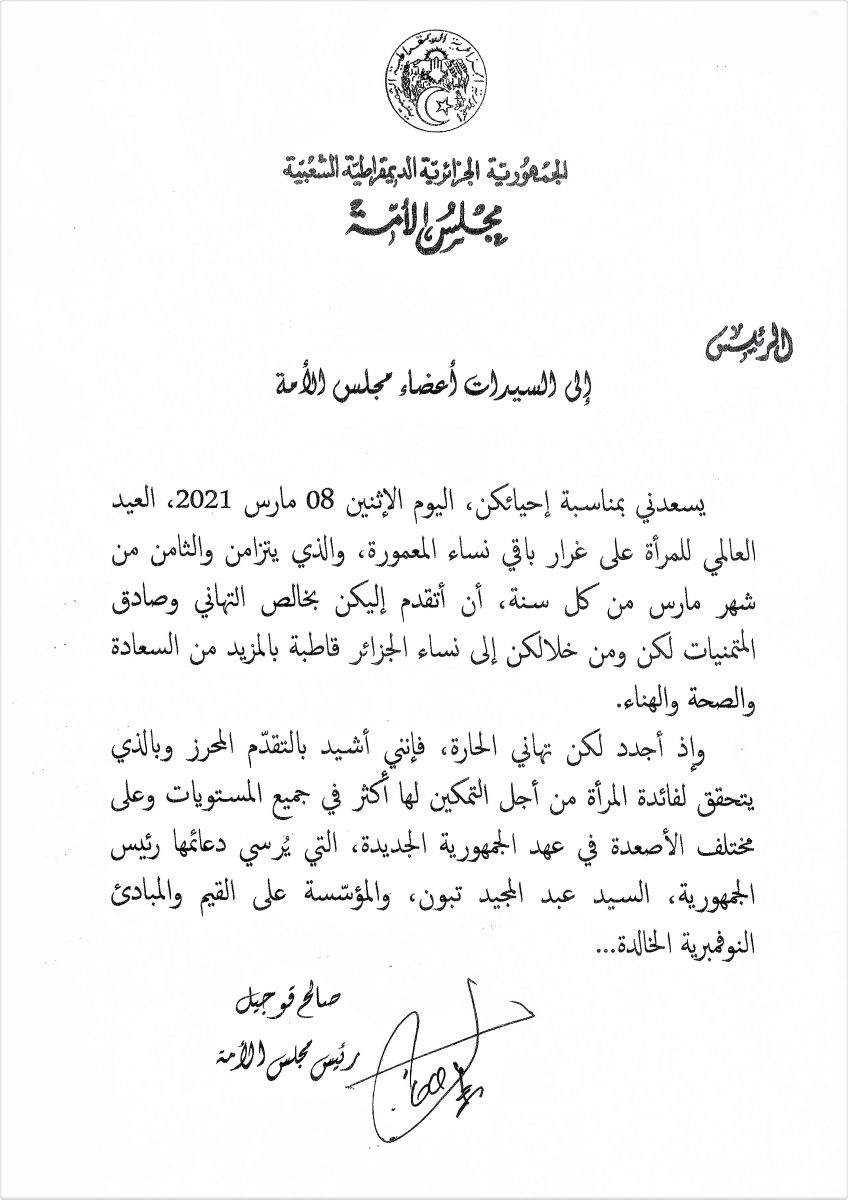 الجمهورية الجزائرية الديمقراطية الشعبية
الجمهُوريّة الجزائريّة الديمقراطيّة الشعبيّة
مجْلسُ الأمّة
الرئيس
إلى السيدات أعضاء مجلس الأمة
يسعدني بمناسبة إحيائكن، اليوم الإثنين 08 مارس 2021، العيد
العالمي للمرأة على غرار باقي نساء المعمورة، والذي يتزامن والثامن من
شهر مارس من كل سنة، أن أتقدم إليكن بخالص التهاني وصادق
المتمنيات لكن ومن خلالكن إلى نساء الجزائر قاطبة بالمزيد من السعادة
والصحة والهناء.
وإذ أجدد لكن تهاني الحارة، فإنني أشيد بالتقدّم المحرز وبالذي
يتحقق لفائدة المرأة من أجل التمكين لها أكثر في جميع المستويات وعلى
مختلف الأصعدة في عهد الجمهورية الجديدة، التي يُرسي دعائمها رئيس
الجمهورية، السيد عبد المجيد تبون، والمؤسّسة على القيم والمبادئ
النوفمبرية الخالدة...
صالح قوجيل
رئيس مجلس الأمة